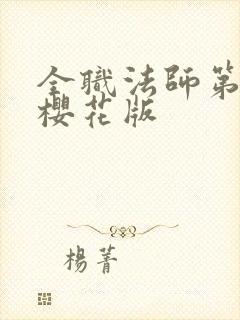 全職法師第
櫻花版
楊菁